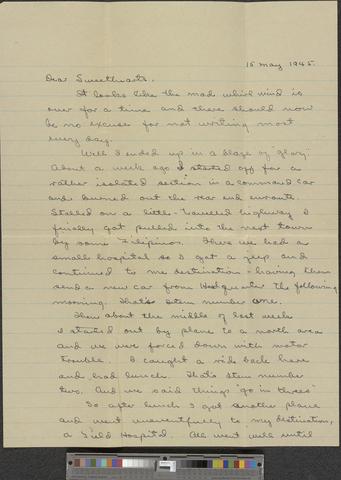 15 May 1945.
Dear Sweethearts.
It looks like the mad whirlwind is
over for a time and there should now
be no excuse for not writing most
every day.
Well I ended up in a blaze of "glory".
About a week ago I started off for a
rather isolated section in a command car
and burned out the rear end enroute.
Stalled on a little-travelled highway I
finally got pulled into the next town
by some Filipinos. There we had a
small hospital so I got a jeep and
continued to my destination - having them
send a new car from Headquarters the following
morning. That's item number one.
Then about the middle of last week
I started out by plane to a north area
and we were forced down with motor
trouble. I caught a ride back here
and had lunch. That's item number
two. And we said things "go in threes"
So after lunch I got another plane
and went uneventfully to my destination,
a Field Hospital. All went well until